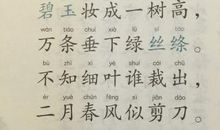 碧玉妆成一树高，
wàn tiáo chuí xià lǜ sī tāo
万条垂下绿丝绦。
bù zhī xì yè shuí cái chū
不知细叶谁裁出，
èr yuè chūn fēng sì jiǎn dāo
二月春风似剪刀。